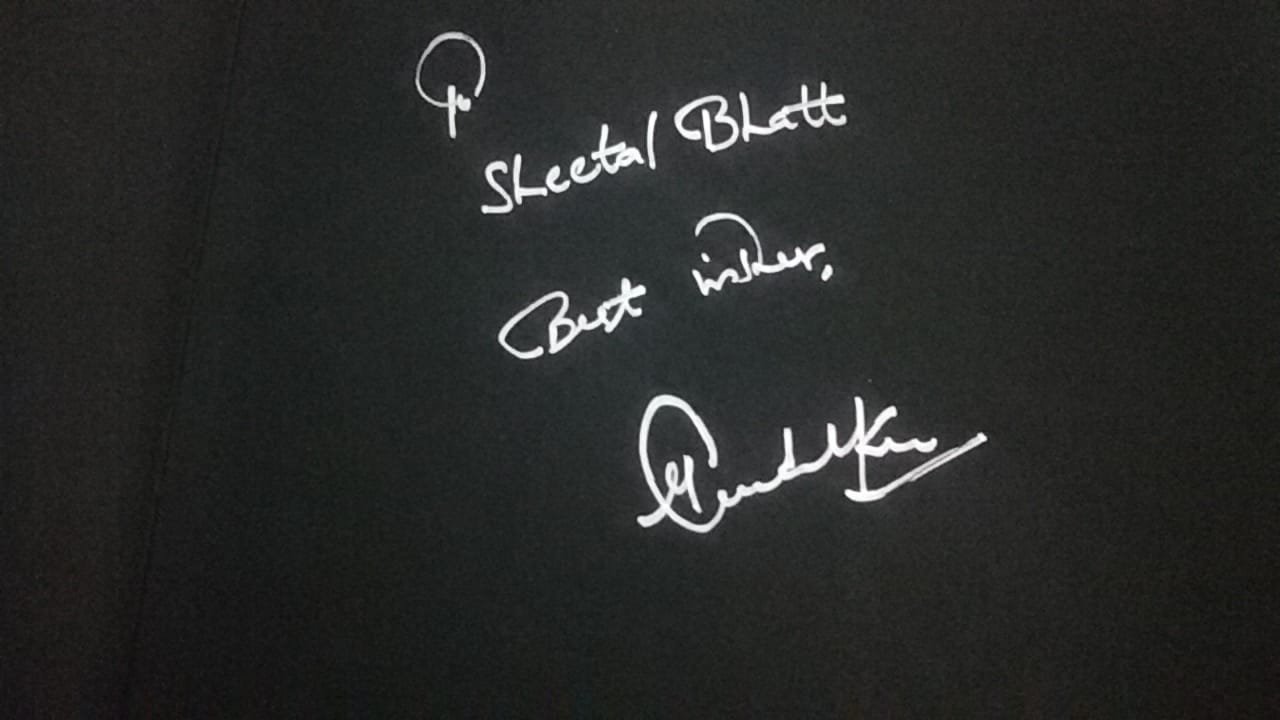 To
Sheetal Bhatt
Best wishes,